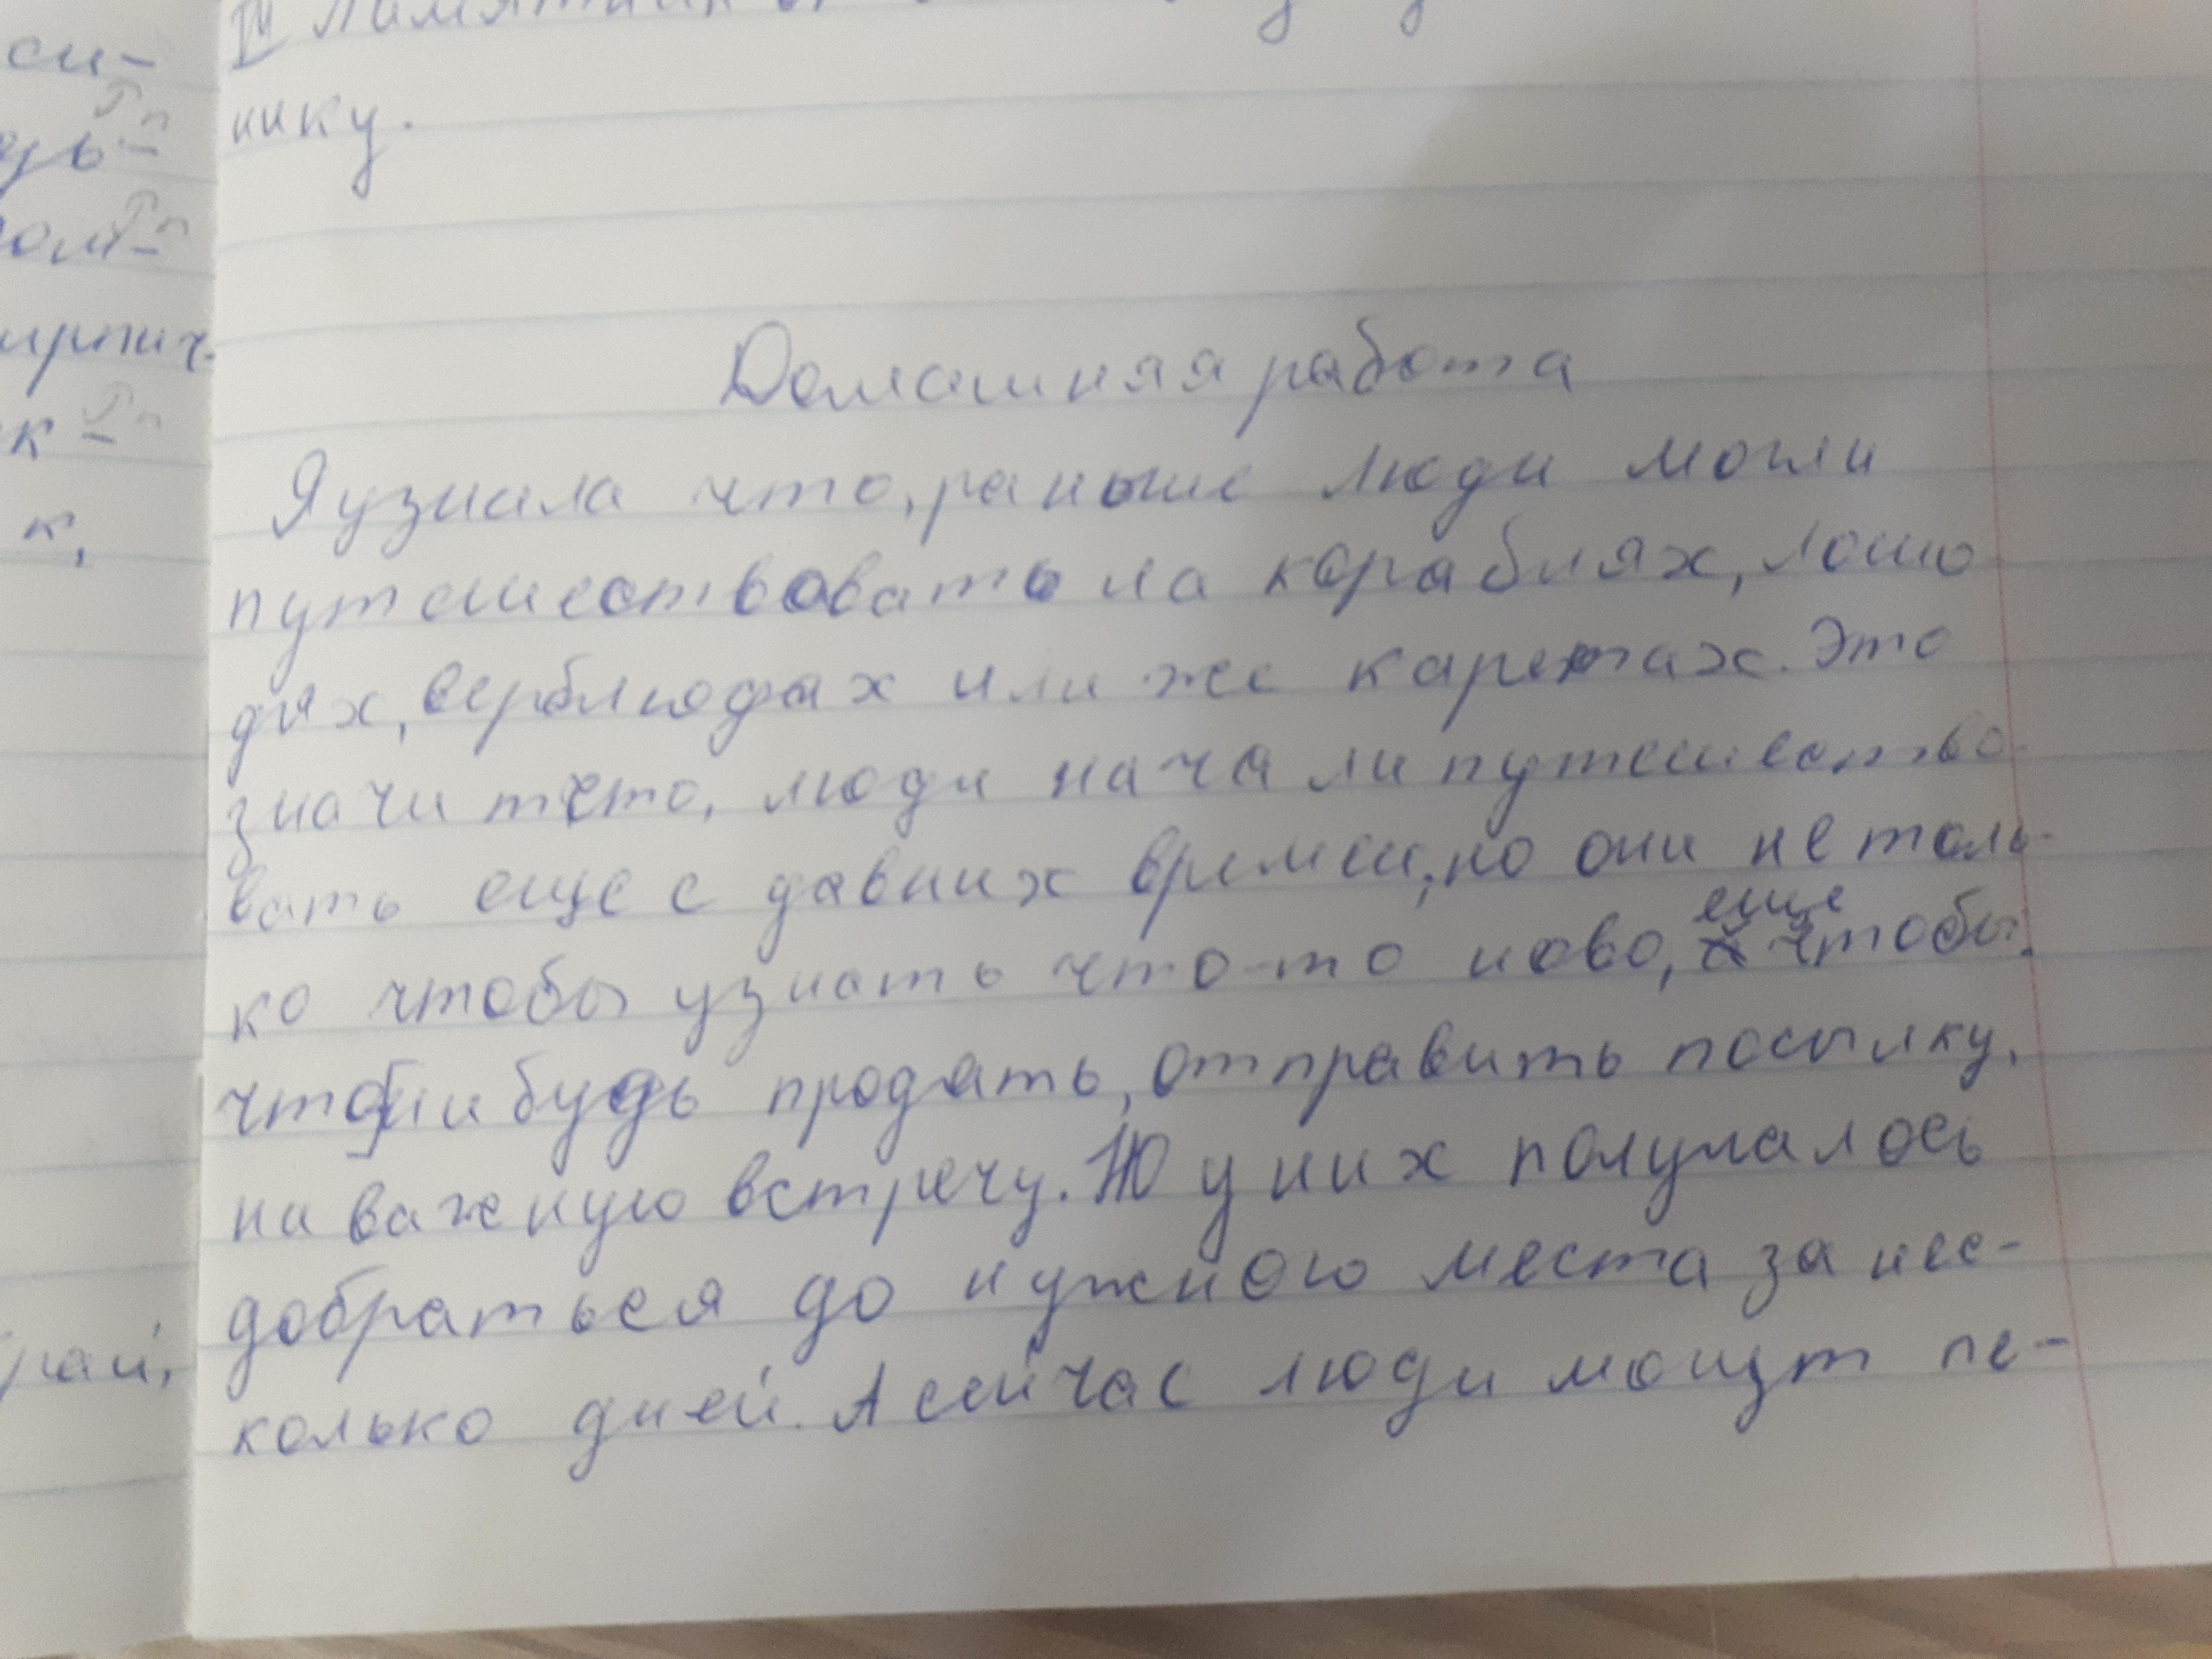 си-
нику.
к,
Домашняя работа
Я узнала что, раньше люди могли
путешествовать на кораблях, лошо
дях, верблюдах или же каретах. Это
значит что, люди начали путешество
вать еще с давних времен, но они не толь-
ко чтобы узнать что-то ново, еще чтобы
нибудь продать, отправить посылку,
на важную встречу. у них получалось
добраться до нужного места за нес-
колько дней. А сейчас люди могут пе-